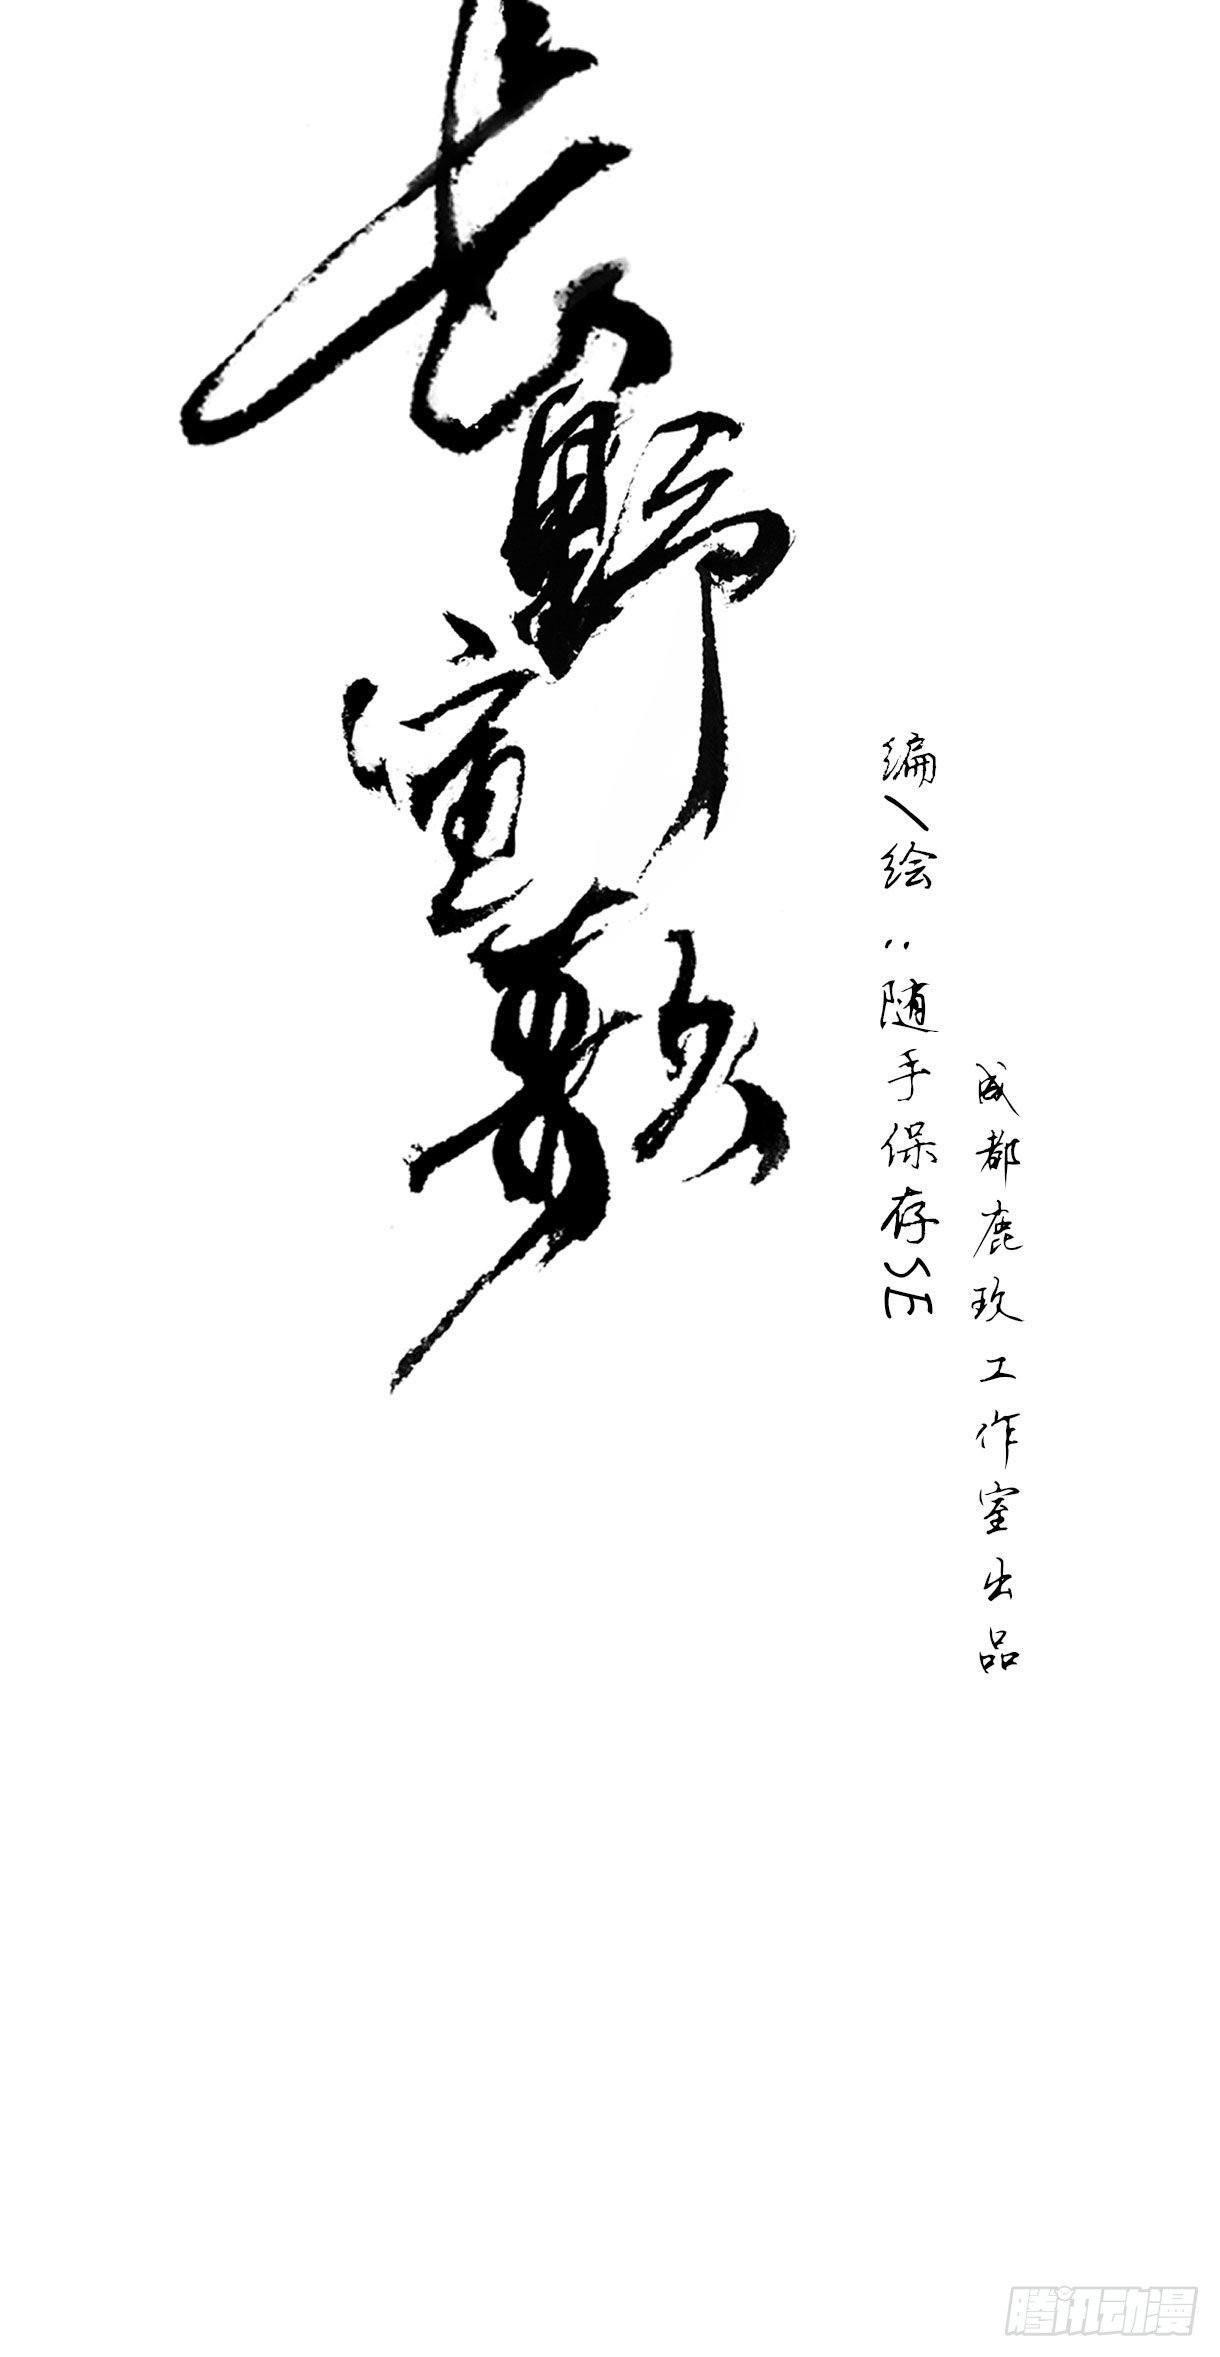 长野宣歌
编/绘：随手保存SE
成都鹿玖工作室出品
腾讯动漫